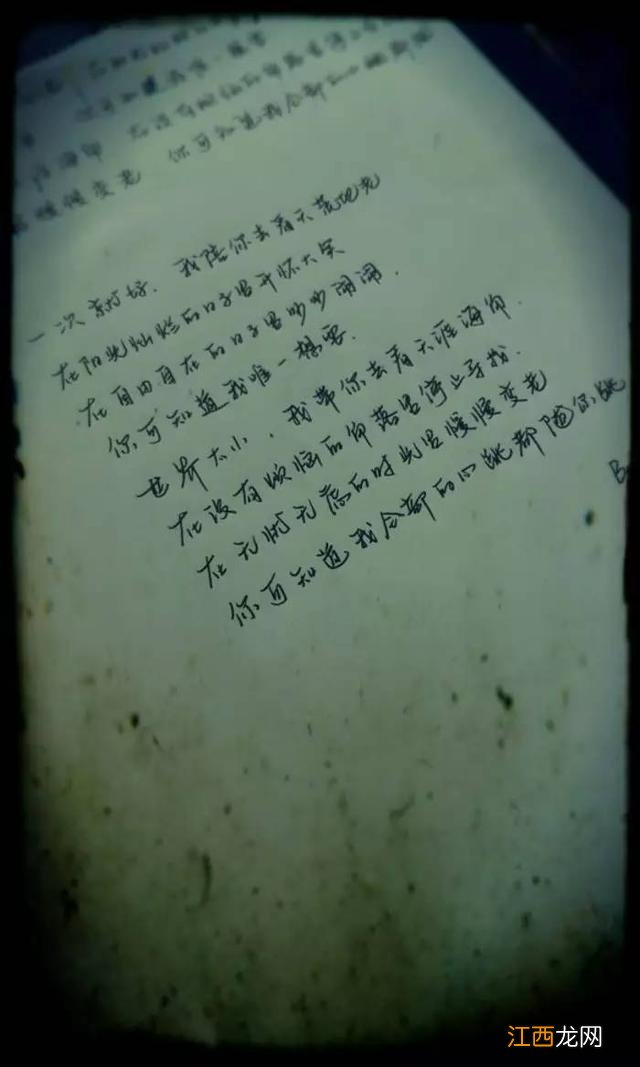 慢慢变老 你可知道我全部的心跳随
一次就好. 我陪你去看天荒地老
在阳光灿烂的日子里开怀大笑
在自由自在的日子里吵吵闹闹.
你可知道我唯一想要.
世界太小. 我带你去看天涯海角.
在没有烦恼的角落里停止寻找.
在无忧无虑的时光里慢慢变老
你可知道我全部的心跳都随你跳
江西龙网